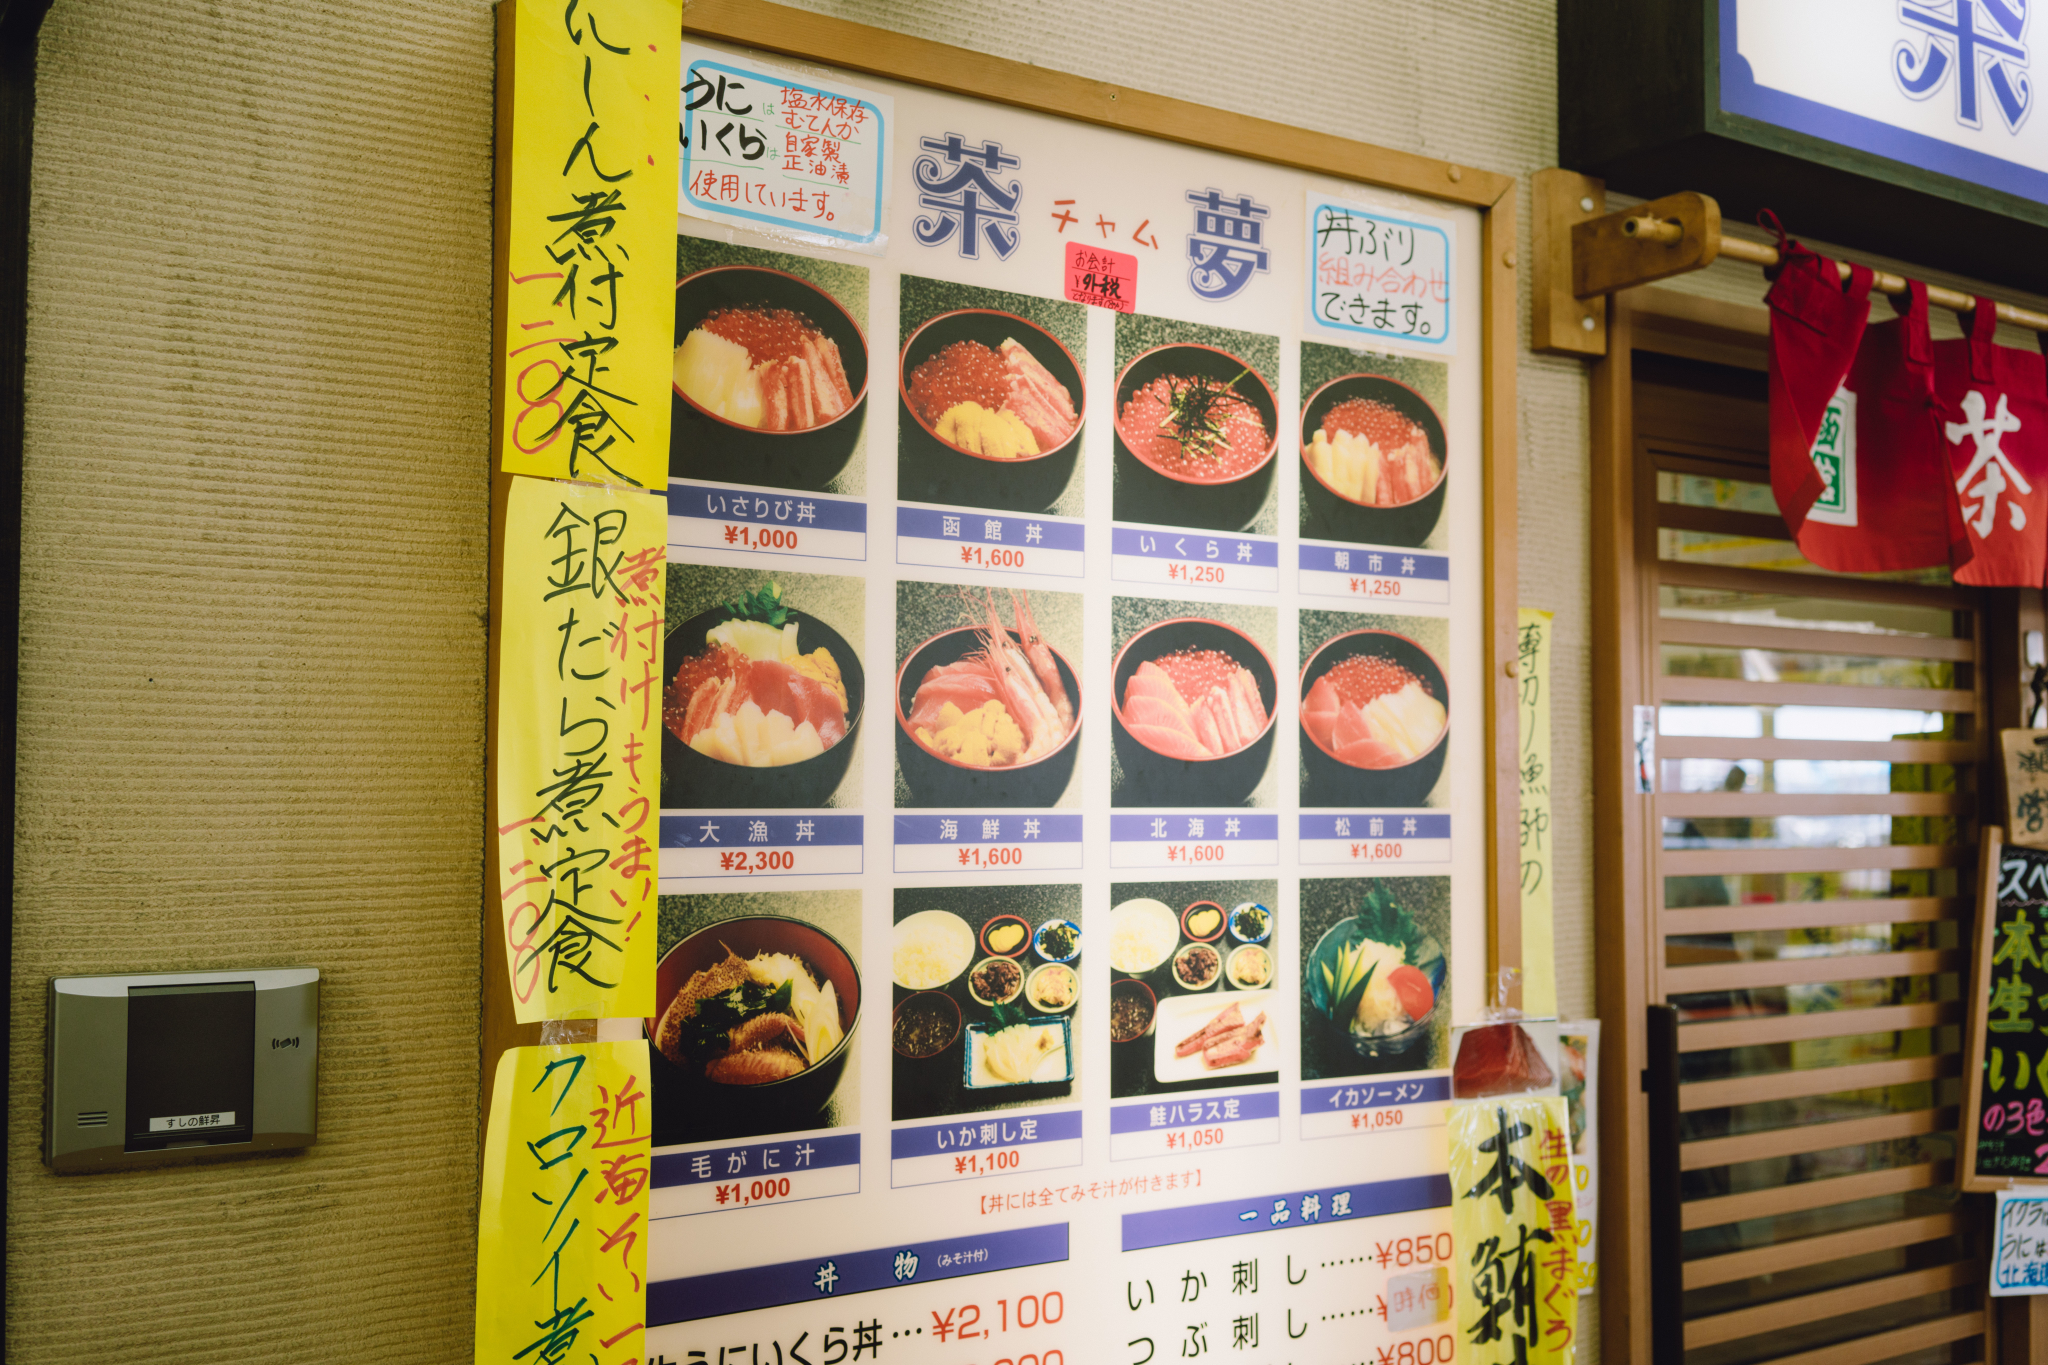 にしん煮付定食
一二〇〇
銀だら煮定食
煮付けもうまい!
一二〇〇
近海そい
クロソイ煮
うには塩水保存
むてんか
いくらは自家製
正油漬
使用しています。
茶夢
チャム
お会計
外税
丼ぶり
組み合わせ
できます。
いさりび丼
¥1,000
函館丼
¥1,600
いくら丼
¥1,250
朝市丼
¥1,250
大漁丼
¥2,300
海鮮丼
¥1,600
北海丼
¥1,600
松前丼
¥1,600
毛がに汁
¥1,000
いか刺し定
¥1,100
鮭ハラス定
¥1,050
イカソーメン
¥1,050
【丼には全てみそ汁が付きます】
丼物(みそ汁付)
生うにいくら丼…¥2,100
一品料理
いか刺し……¥850
つぶ刺し……時価
¥800
生の黒まぐろ
本鮪
漁師の
すしの鮮昇
茶
函館
茶
スペ
本
生
い
の3色
イクラは
うには
北海道